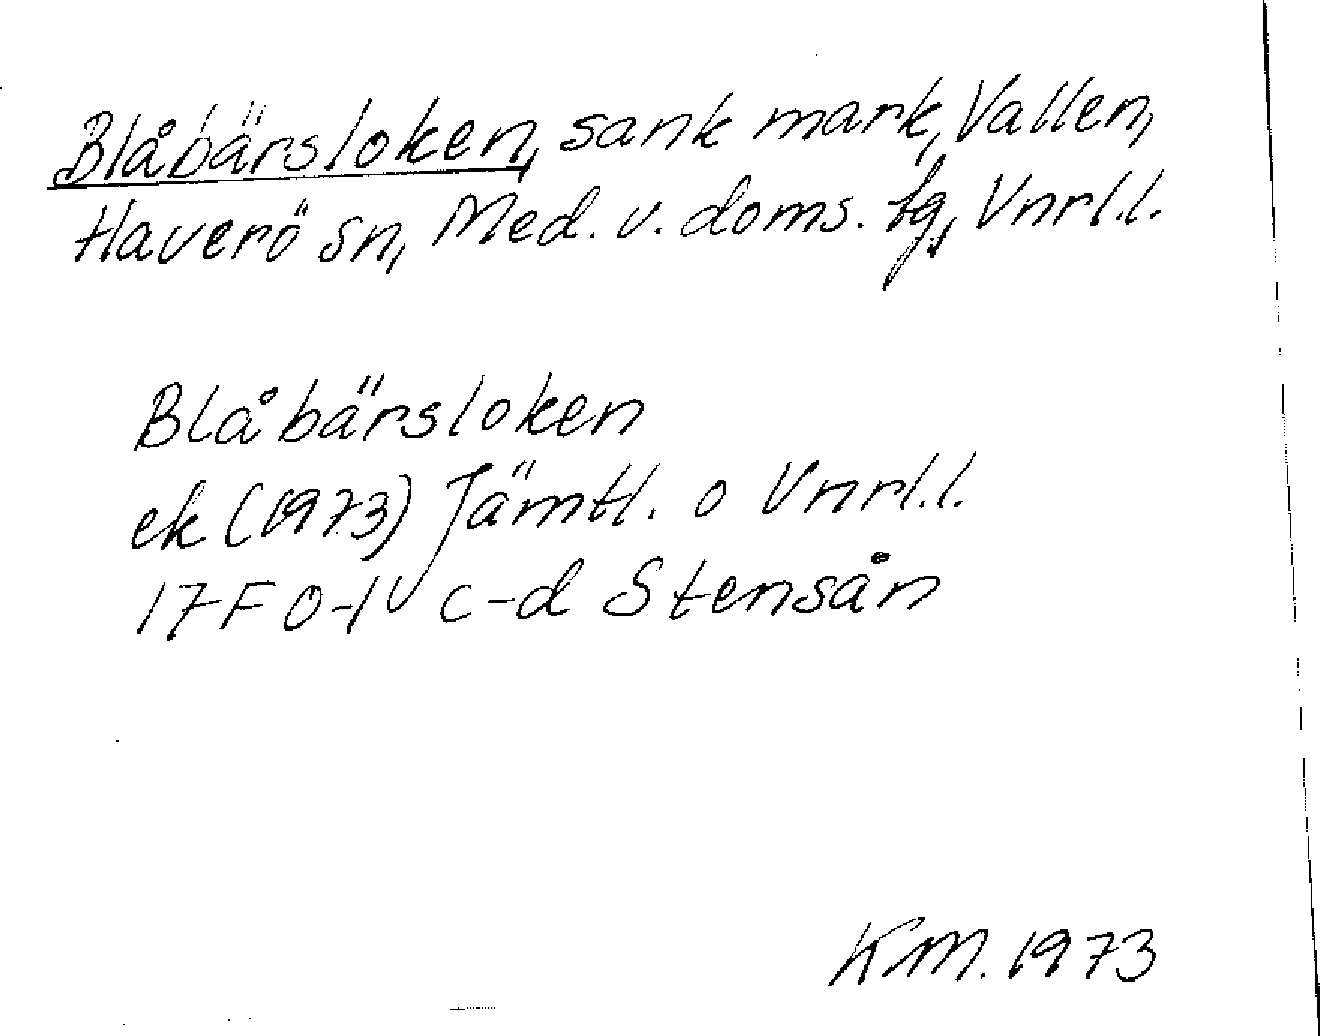 Blåbärsloken, sank mark, Vallen,
Haverö sn, Med. v. doms. tg, Vnrl.l.
Blåbärsloken
ek (1973) Jämtl. o Vnrl.l.
17F 0-1 c-d Stensån
KM. 1973